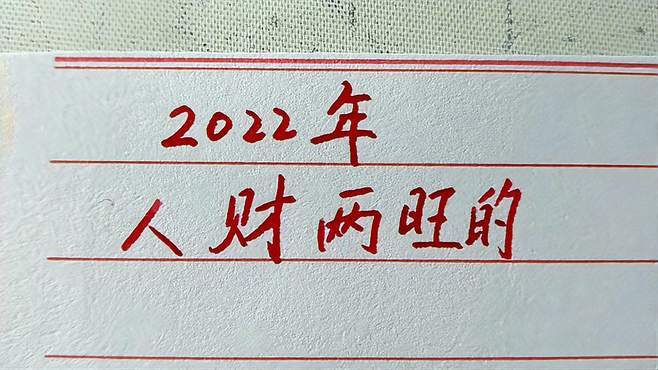 2022年
人财两旺的